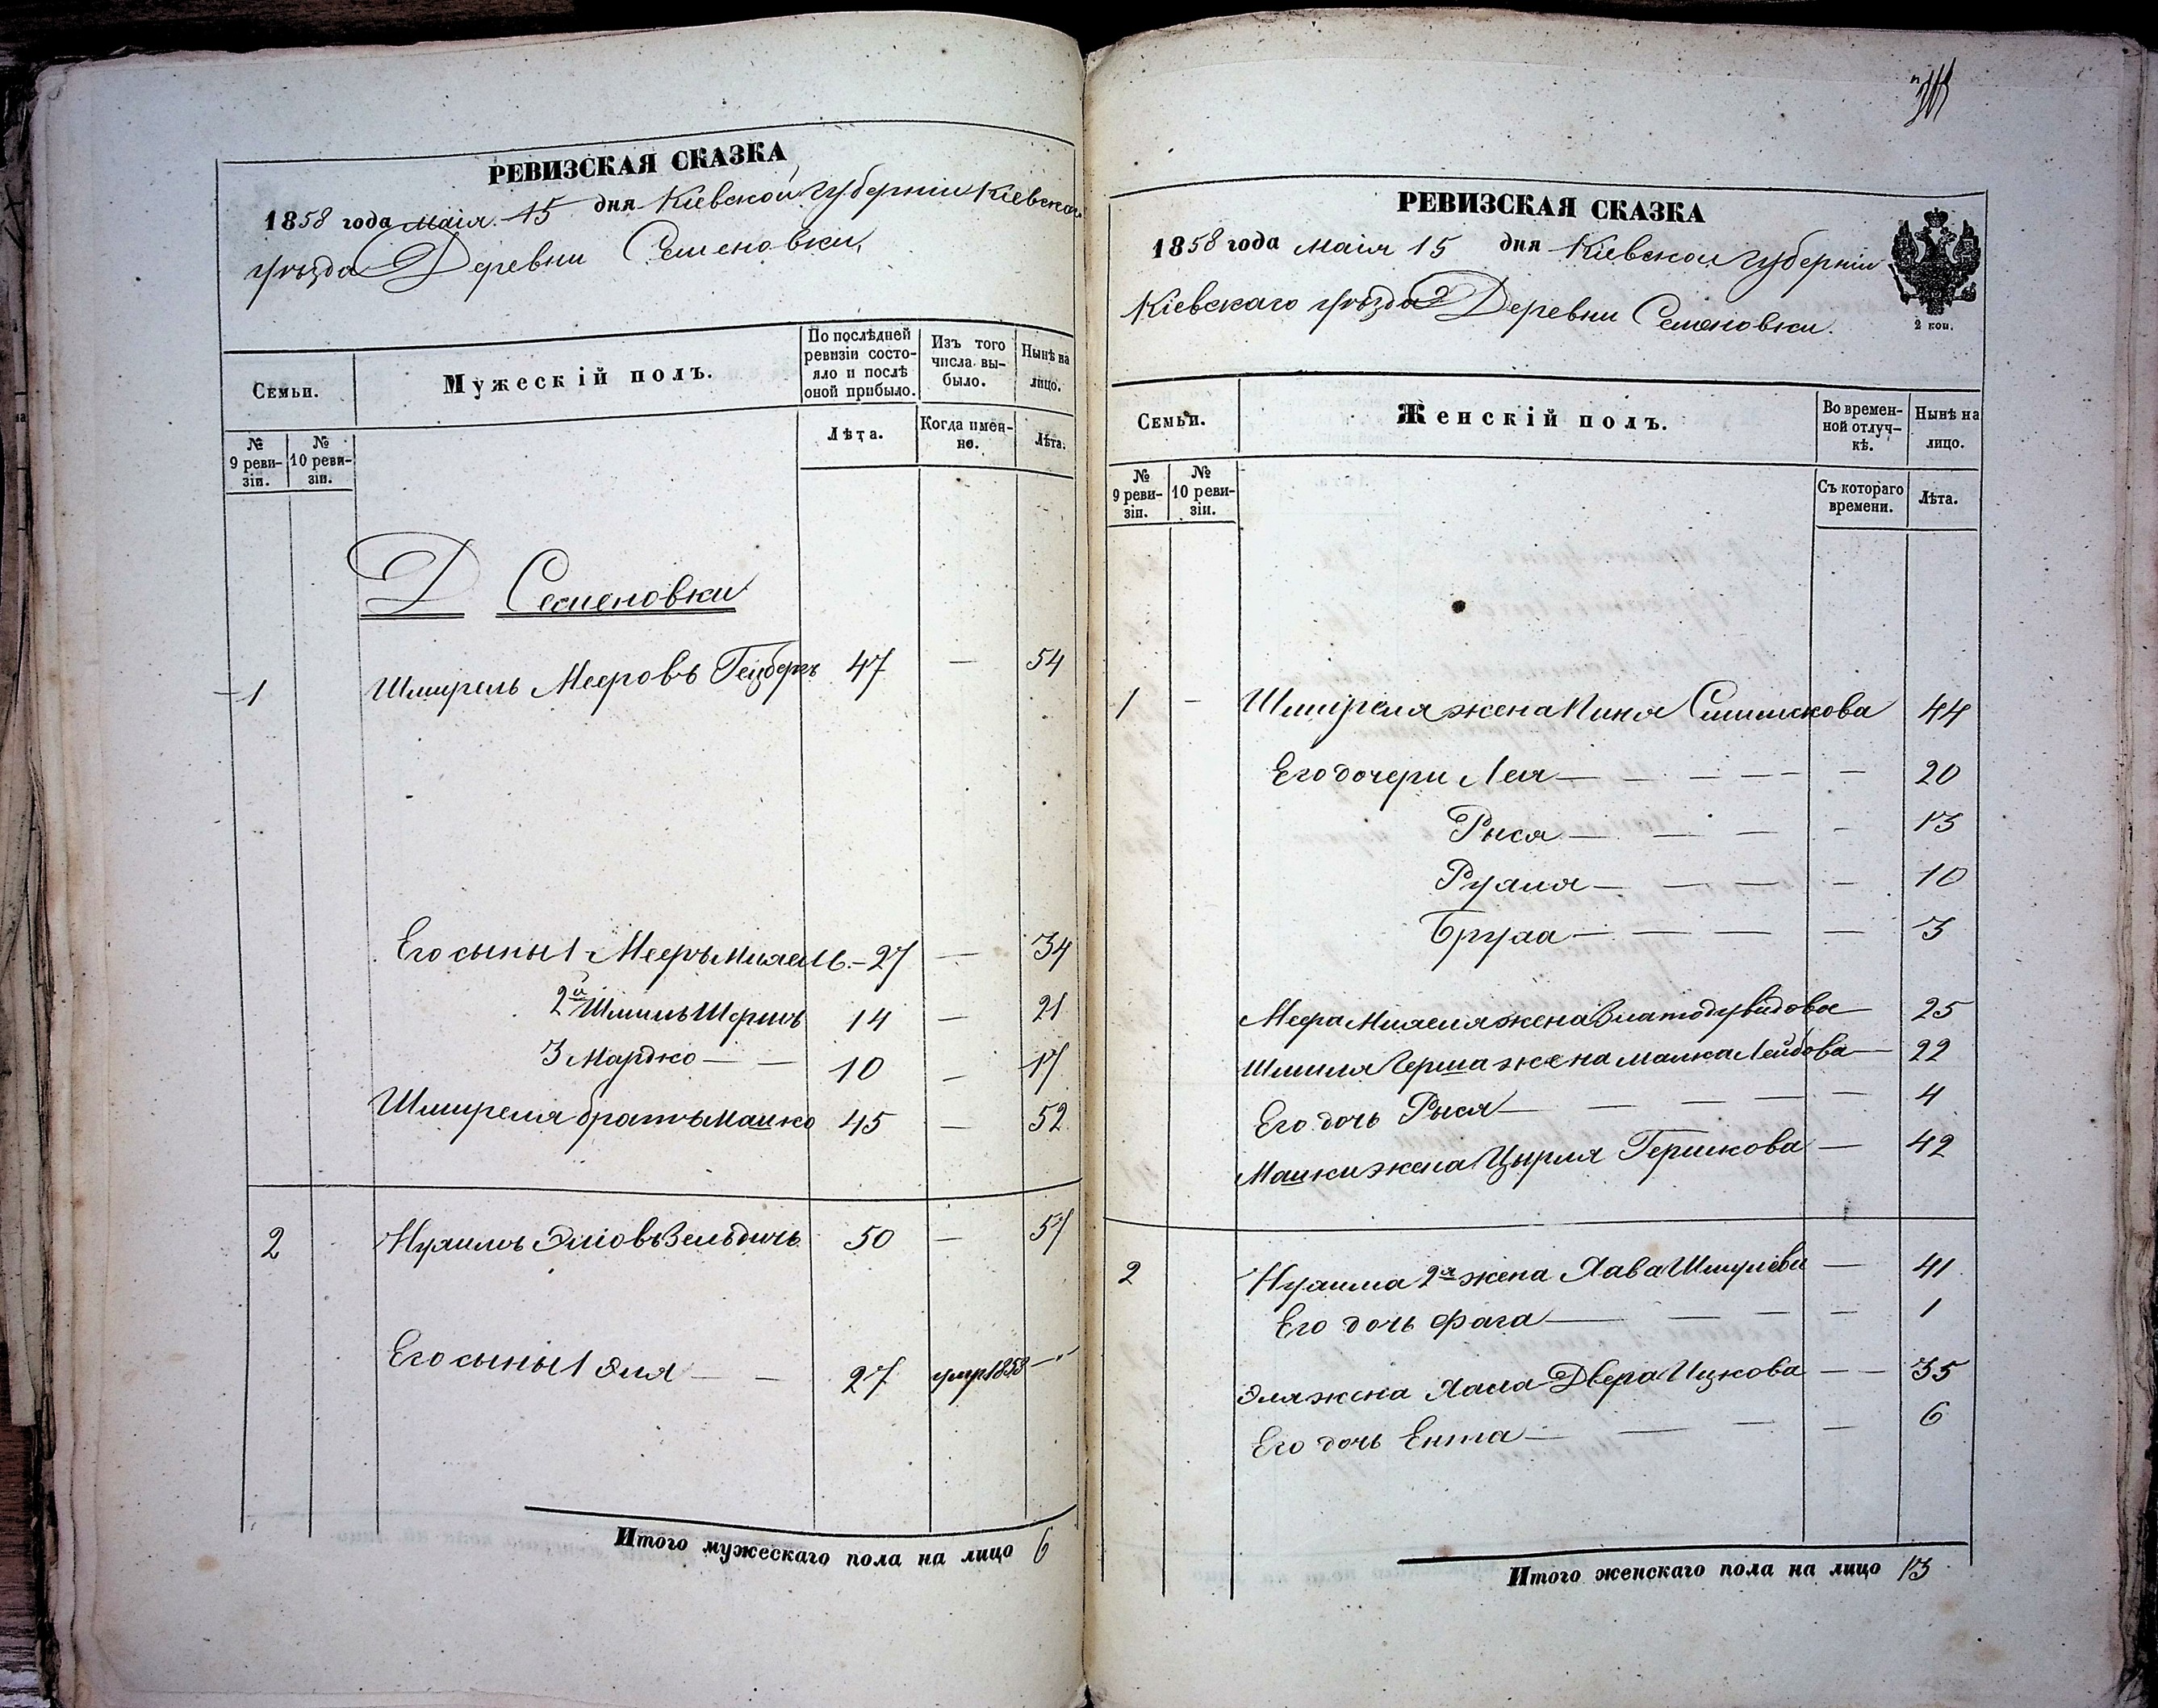 РЕВИЗСКАЯ СКАЗКА
1858 года маія 15 дня Кіевской губерніи Кіевскаго
уѣзда Деревни Семеновки,
Семьи.
Мужескій полъ.
По послѣдней ревизіи состо-
яло и послѣ
оной прибыло.
Изъ того
числа вы-
было.
Нынѣ на
лицо.
№
9 реви-
зіи.
№
10 реви-
зіи.
Лѣта.
Когда имен-
но.
Лѣта.
Д Семеновки
1 Шмирель Мееровъ 47 — 54
Его сыны 1 Мееръ Михель — 27 — 34
2й Шмиль Гершъ 14 — 21
3 Мардко — — 10 — 17
Шмиреля братъ Машко 45 — 52
2 Нухимъ Эліовъ Зельдичъ 50 — 57
Его сыны 1 Эля — — 27 умр 1853 — "
Итого мужескаго пола на лицо 6
РЕВИЗСКАЯ СКАЗКА
1858 года маія 15 дня Кіевской губерніи
Кіевскаго уѣзда Деревни Семеновки.
2 коп.
Семьи.
Женскій полъ.
Во времен-
ной отлуч-
кѣ.
Нынѣ на
лицо.
№
9 реви-
зіи.
№
10 реви-
зіи.
Съ котораго
времени.
Лѣта.
1 — Шмиреля жена 44
Его дочери Лея — — — — — 20
Рыся — — — — 13
Рухля — — — — 10
Бруха — — — — 3
Меера Михеля жена Злата Дувидова — 25
Шмиля Герша жена Малка Лейбова — 22
Его дочь Рыся — — — — — 4
Машки жена Цырля Гершкова — 42
2 Нухима 2я жена Хава Шмулева — 41
Его дочь Фага — — — — 1
Эля жена Хая Двера Ицкова — — 35
Его дочь Ента — — — — 6
Итого женскаго пола на лицо 13